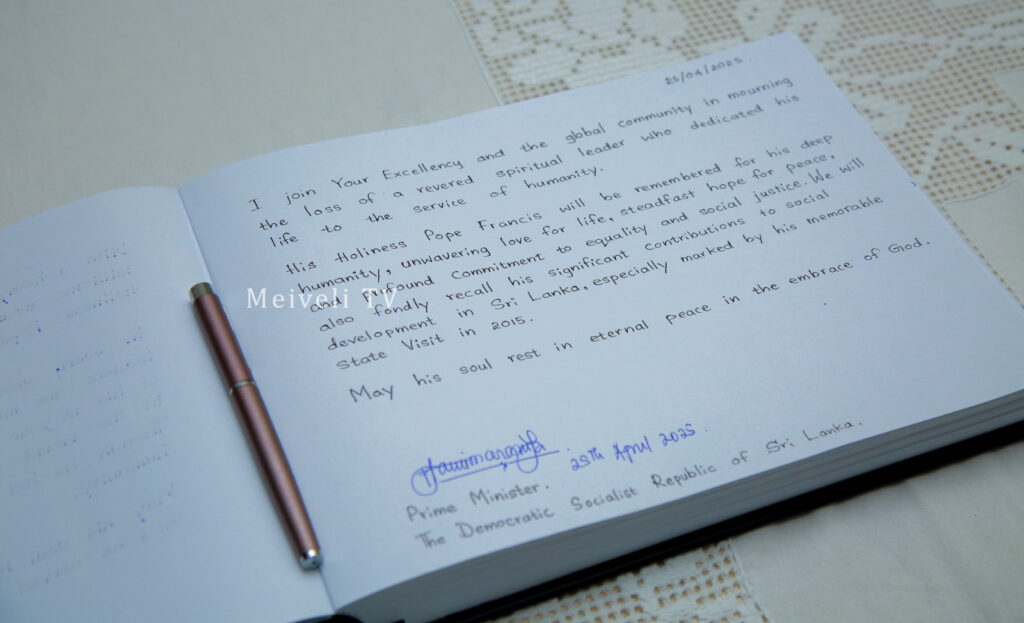 25/04/2025
I join Your Excellency and the global community in mourning
the loss of a revered spiritual leader who dedicated his
life to the service of humanity.
His Holiness Pope Francis will be remembered for his deep
humanity, unwavering love for life, steadfast hope for peace,
and profound commitment to equality and social justice. We will
also fondly recall his significant contributions to social
development in Sri Lanka, especially marked by his memorable
State Visit in 2015.
May his soul rest in eternal peace in the embrace of God.
25th April 2025
Prime Minister.
The Democratic Socialist Republic of Sri Lanka.
Meiveli TV